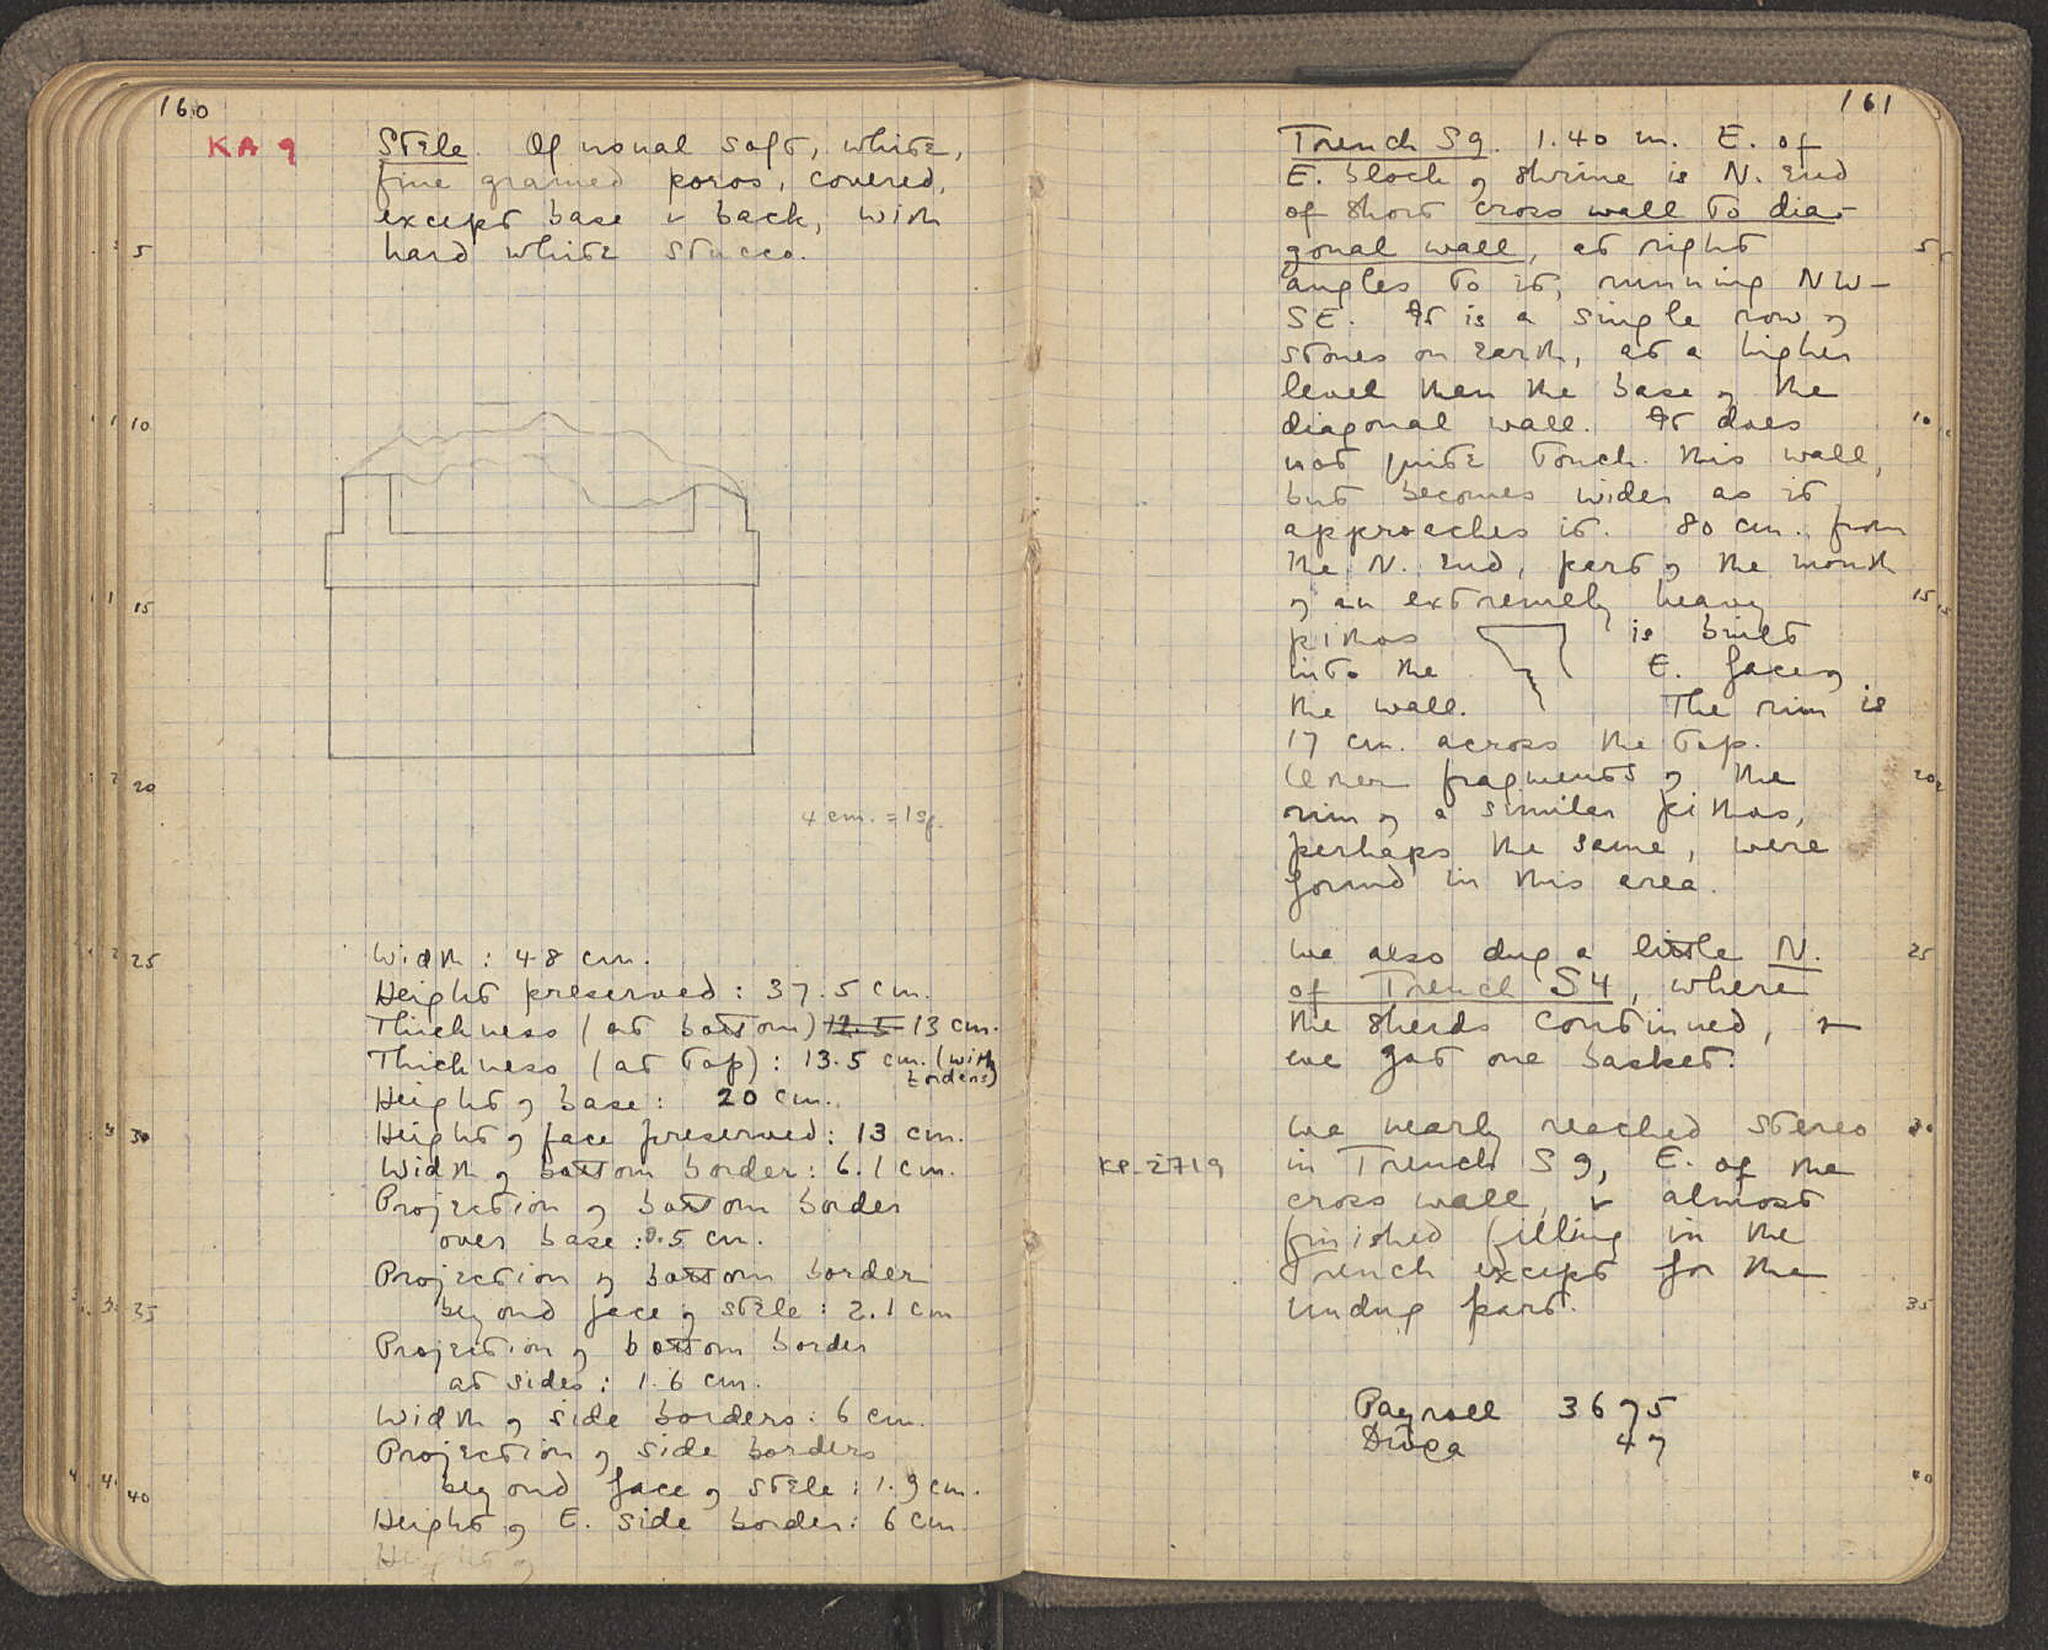 160
KA 9
Stele. Of usual soft, white,
fine grained poros, covered,
except base & back, with
hard white stucco.
5
10
15
20
4 cm. = 1 sq.
25
Width: 48 cm.
Height preserved: 37.5 cm.
Thickness (at bottom) 12.5 13 cm.
Thickness (at top): 13.5 cm. (with
borders)
Height of base: 20 cm.
30
Height of face preserved: 13 cm.
Width of bottom border: 6.1 cm.
Projection of bottom border
over base: .5 cm.
Projection of bottom border
beyond face of stele: 2.1 cm
35
Projection of bottom border
at sides: 1.6 cm.
Width of side borders: 6 cm.
Projection of side borders
beyond face of stele: 1.9 cm.
40
Height of E. side border: 6 cm
Height of
161
Trench S9. 1.40 m. E. of
E. block of shrine is N. end
of short cross wall to dia-
gonal wall, at right
5
angles to it, running NW-
SE. It is a single row of
stones on earth, at a higher
level than the base of the
diagonal wall. It does
10
not quite touch this wall,
but becomes wider as it
approaches it. 80 cm. from
the N. end, part of the mouth
of an extremely heavy
15
pithos is built
into the E. face of
the wall. The rim is
17 cm. across the top.
Other fragments of the
20
rim of a similar pithos,
perhaps the same, were
found in this area.
We also dug a little N.
25
of Trench S4, where
the sherds continued, &
we got one basket.
We nearly reached stereo
30
KP-2719
in Trench S9, E. of the
cross wall, & almost
finished filling in the
trench except for the
undug part.
35
Payroll 3675
47
40